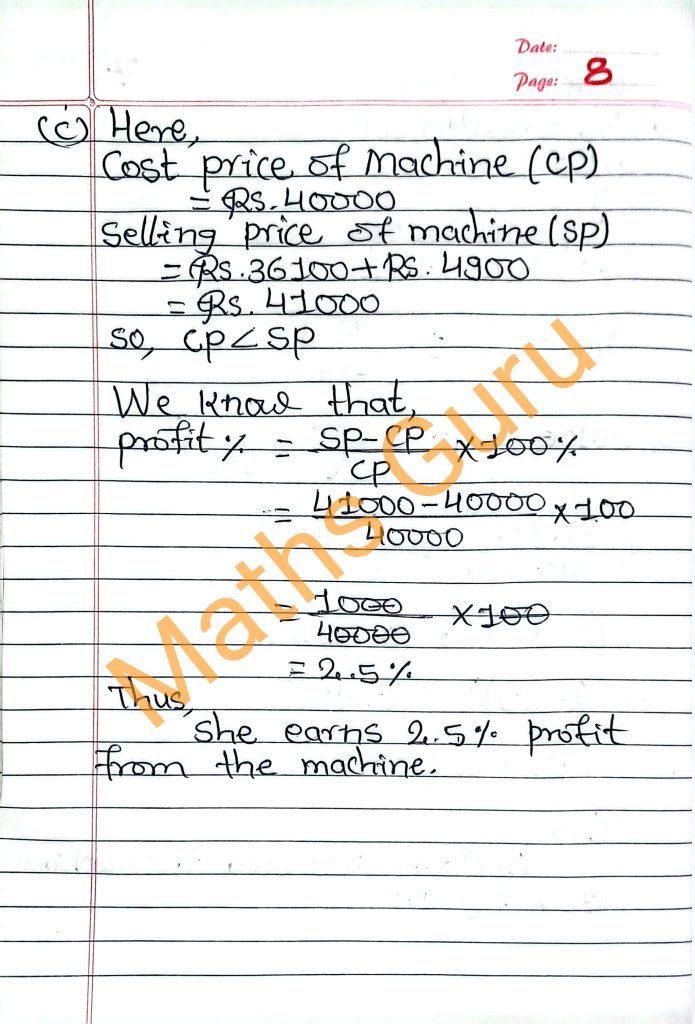 Date:
Page: 8
(c) Here,
Cost price of Machine (CP)
= Rs. 40000
Selling price of machine (SP)
= Rs. 36100 + Rs. 4900
= Rs. 41000
So, CP < SP
We know that,
profit % = SP - CP / CP × 100 %
= 41000 - 40000 / 40000 × 100
= 1000 / 40000 × 100
= 2.5 %
Thus,
She earns 2.5 % profit
from the machine.
Maths Guru